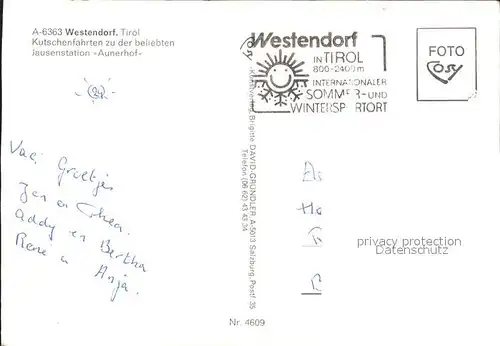 A-6363 Westendorf, Tirol
Kutschenfahrten zu der beliebten
Jausenstation »Aunerhof«
24
Westendorf
IN TIROL
800-2400 m
INTERNATIONALER
SOMMER-UND
WINTERSPORTORT
FOTO
Cosy
Cosy-Verlag Brigitte DAVID-GRÜNDLER A-5013 Salzburg, Postf. 35
Telefon (06 62) 43 43 24
Groetjes
Jan en Thea.
Addy en Bertha
René en Anja.
privacy protection
Datenschutz
Nr. 4609